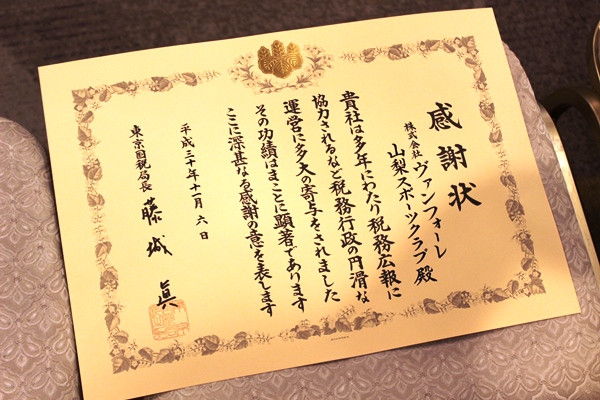 感謝状
株式会社 ヴァンフォーレ
山梨スポーツクラブ 殿
貴社は多年にわたり税務広報に
協力されるなど税務行政の円滑な
運営に多大の寄与をされました
その功績はまことに顕著であります
ここに深甚なる感謝の意を表します
平成三十年十一月六日
東京国税局長 藤城 眞